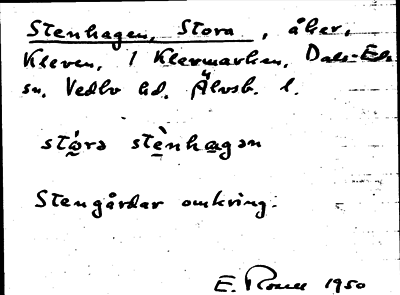 Stenhagen, Stora, åker,
Kleven, 1 Klevmarken, Dals-Eds
sn, Vedbo hd. Älvsb. l.
stó̱rə stè̱nha̱gən
Stengårdar omkring.
E. 1950